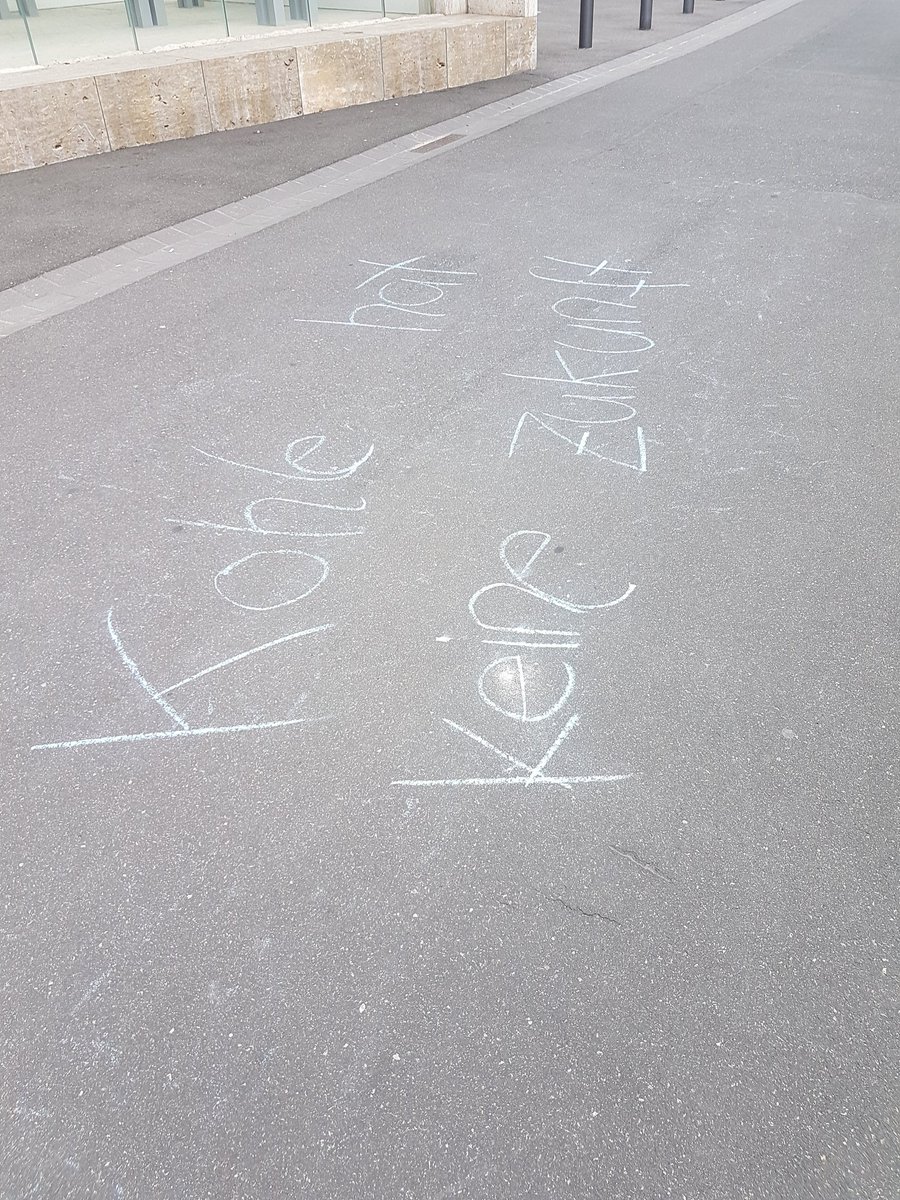 Kohle hat
Keine Zukunft